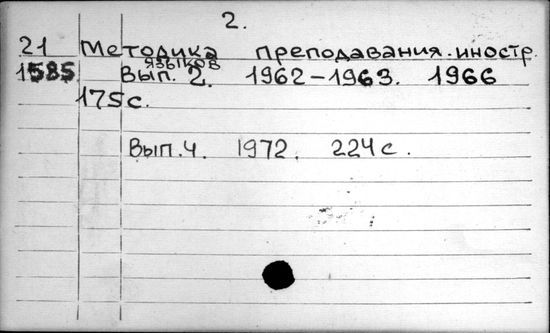 2.
21 Методика преподавания иностр.
языков
1585 Вып. 2. 1962-1963. 1966
175 с.
Вып. 4. 1972. 224 с.